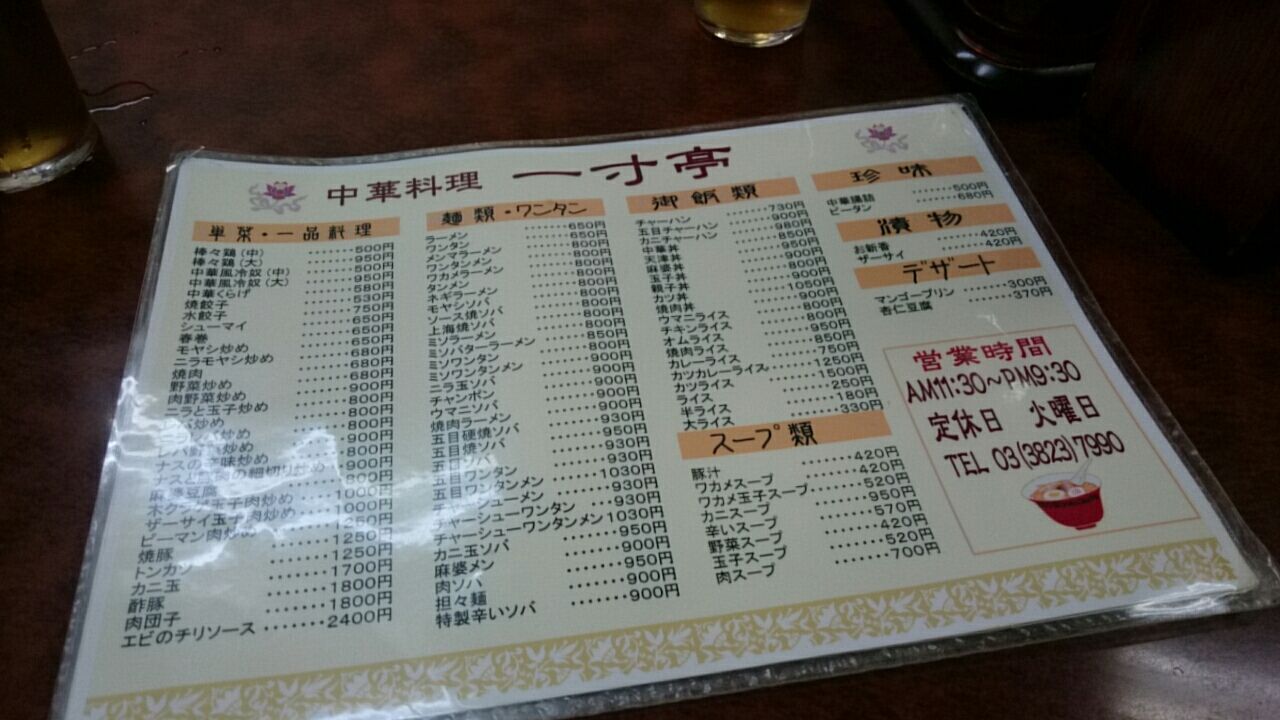 中華料理 一寸亭
単菜・一品料理
棒々鶏(中) ‥‥‥500円
棒々鶏(大) ‥‥‥950円
中華風冷奴(中) ‥‥‥500円
中華風冷奴(大) ‥‥‥950円
中華くらげ ‥‥‥580円
焼餃子 ‥‥‥530円
水餃子 ‥‥‥750円
シューマイ ‥‥‥650円
春巻 ‥‥‥650円
モヤシ炒め ‥‥‥650円
ニラモヤシ炒め ‥‥‥680円
焼肉 ‥‥‥680円
野菜炒め ‥‥‥680円
肉野菜炒め ‥‥‥900円
ニラと玉子炒め ‥‥‥800円
バ炒め ‥‥‥800円
バ炒め ‥‥‥800円
レバ野菜炒め ‥‥‥900円
ナスの辛味炒め ‥‥‥800円
ナスと豚肉の細切り炒め 900円
麻婆豆腐 ‥‥‥800円
木クラゲ玉子肉炒め 900円
ザーサイ玉子肉炒め 1000円
ピーマン肉炒め ‥‥‥1000円
焼豚 ‥‥‥1250円
トンカツ ‥‥‥1250円
カニ玉 ‥‥‥1700円
酢豚 ‥‥‥1800円
肉団子 ‥‥‥1800円
エビのチリソース ‥‥‥2400円
麺類・ワンタン
ラーメン ‥‥‥650円
ワンタン ‥‥‥650円
メンマラーメン ‥‥‥800円
ワンタンメン ‥‥‥800円
ワカメラーメン ‥‥‥800円
タンメン ‥‥‥800円
ネギラーメン ‥‥‥800円
モヤシソバ ‥‥‥800円
ソース焼ソバ ‥‥‥800円
上海焼ソバ ‥‥‥800円
ミソラーメン ‥‥‥800円
ミソバターラーメン ‥‥‥850円
ミソワンタン ‥‥‥800円
ミソワンタンメン ‥‥‥900円
ニラ玉ソバ ‥‥‥900円
チャンポン ‥‥‥900円
ウマニソバ ‥‥‥900円
焼肉ラーメン ‥‥‥900円
五目硬焼ソバ ‥‥‥930円
五目焼ソバ ‥‥‥950円
五目ソバ ‥‥‥930円
五目ワンタン ‥‥‥930円
五目ワンタンメン ‥‥‥1030円
チャーシューメン ‥‥‥930円
チャーシューワンタン ‥‥‥930円
チャーシューワンタンメン 1030円
カニ玉ソバ ‥‥‥950円
麻婆メン ‥‥‥900円
肉ソバ ‥‥‥950円
担々麺 ‥‥‥900円
特製辛いソバ ‥‥‥900円
御飯類
チャーハン ‥‥‥730円
五目チャーハン ‥‥‥900円
カニチャーハン ‥‥‥980円
中華丼 ‥‥‥850円
天津丼 ‥‥‥950円
麻婆丼 ‥‥‥900円
玉子丼 ‥‥‥800円
親子丼 ‥‥‥900円
カツ丼 ‥‥‥1050円
焼肉丼 ‥‥‥900円
ウマニライス ‥‥‥800円
チキンライス ‥‥‥800円
オムライス ‥‥‥950円
焼肉ライス ‥‥‥850円
カレーライス ‥‥‥750円
カツカレーライス ‥‥‥1250円
カツライス ‥‥‥1500円
ライス ‥‥‥250円
半ライス ‥‥‥180円
大ライス ‥‥‥330円
スープ類
豚汁 ‥‥‥420円
ワカメスープ ‥‥‥420円
ワカメ玉子スープ ‥‥‥520円
カニスープ ‥‥‥950円
辛いスープ ‥‥‥570円
野菜スープ ‥‥‥420円
玉子スープ ‥‥‥520円
肉スープ ‥‥‥700円
珍味
中華腸詰 ‥‥‥500円
ピータン ‥‥‥680円
漬物
お新香 ‥‥‥420円
ザーサイ ‥‥‥420円
デザート
マンゴープリン ‥‥‥300円
杏仁豆腐 ‥‥‥370円
営業時間
AM11:30～PM9:30
定休日 火曜日
TEL 03(3823)7990